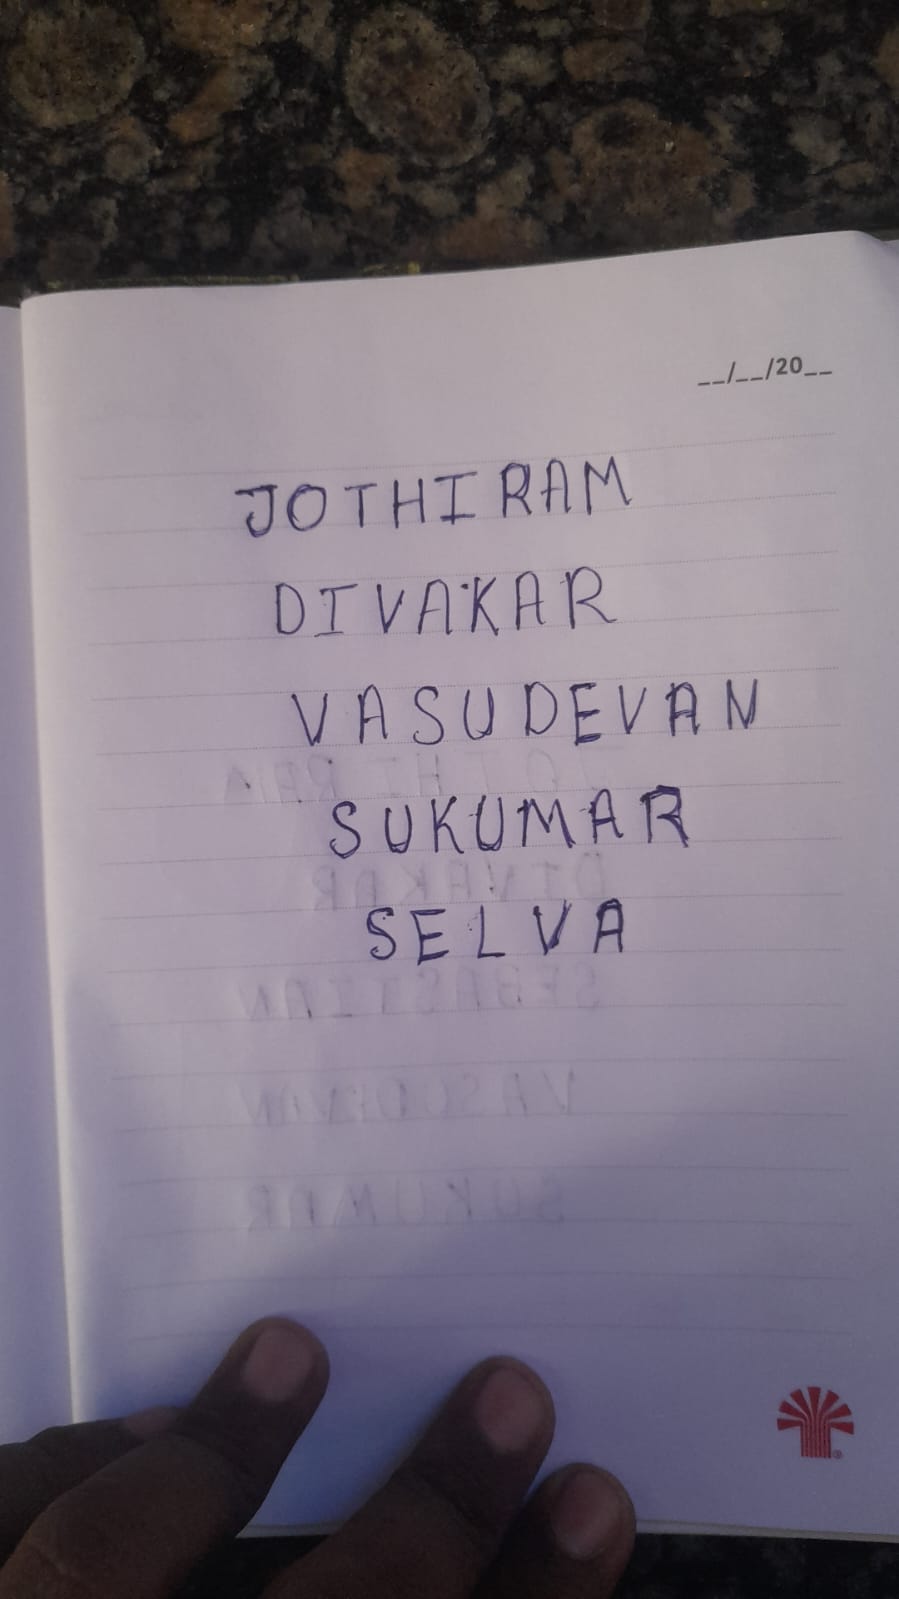 __/__/20__
JOTHIRAM
DIVAKAR
VASUDEVAN
SUKUMAR
SELVA